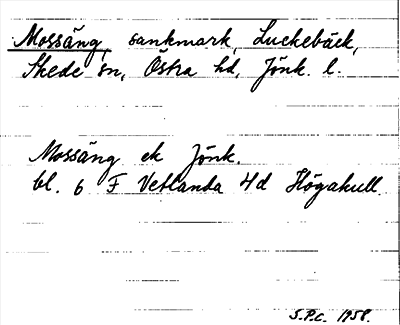 Mossäng, sankmark, Luckebäck,
Skede sn, Östra hd, Jönk. l.
Mossäng ek Jönk.
bl. 6 F Vetlanda 4d Högakull.
S.P.C. 1958.